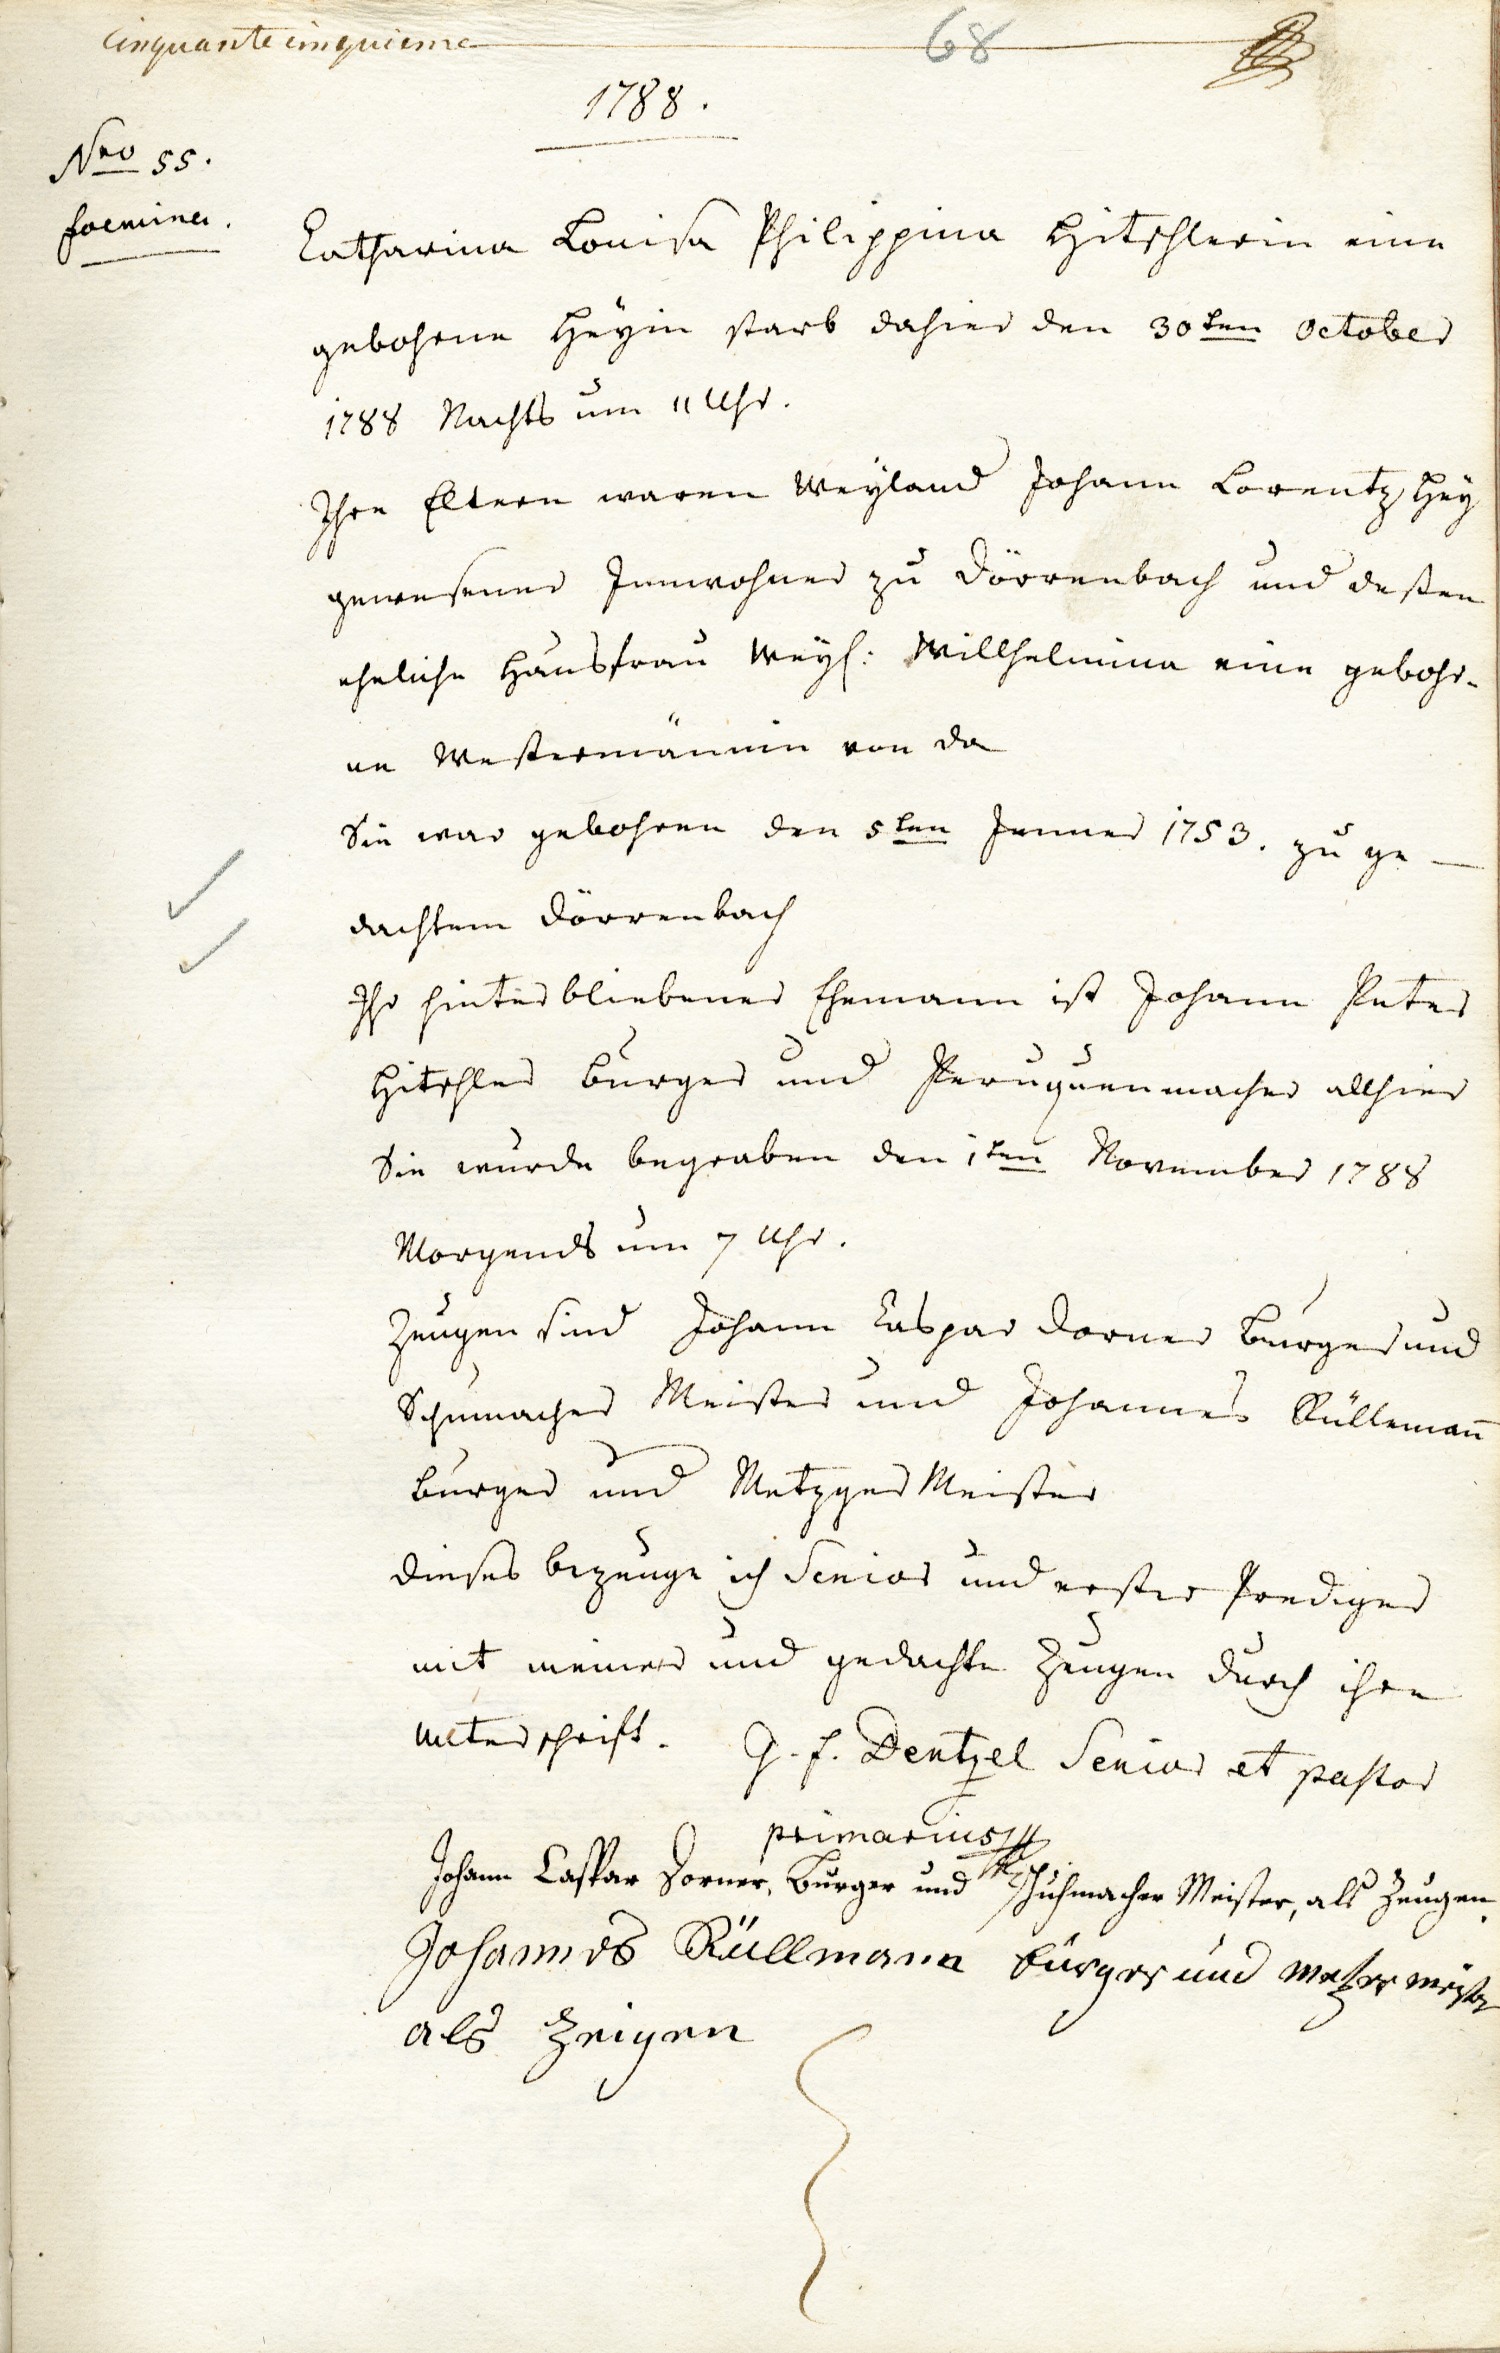 Cinquante cinquieme
68
1788.
Nro 55.
foemina.
Catharina Louisa Philippina Hitschlerin eine
gebohrne Heÿin starb dahier den 30ten October
1788 Nachts um 11 Uhr.
Ihre Eltern waren Weyland Johann Lorentz Heÿ
gewesener Innwohner zu Dörrenbach und deßen
eheliche Hausfrau Weyl: Willhelmina eine gebohr-
ne Westermännin von da
Sie war gebohren den 5ten Jenner 1753. zu ge-
dachtem Dörrenbach
Ihr hinterbliebener Ehemann ist Johann Peter
Hitschler burger und Peruquenmacher allhier
Sie wurde begraben den 1ten November 1788
Morgends um 7 Uhr.
Zeugen sind Johann Caspar Dorner Burger und
Schumacher Meister und Johannes Rüllemañ
burger und Metzger Meister
dieses bezeuge ich Senior und erster Prediger
mit meiner und gedachte Zeugen durch ihre
Unterschrift. G. F. Dentzel Senior et pastor
primarius
Johann Caspar Dorner, Burger und Schuhmacher Meister, als Zeugen.
Johannes Rüllmann bürger und metzer meister
als Zeigen